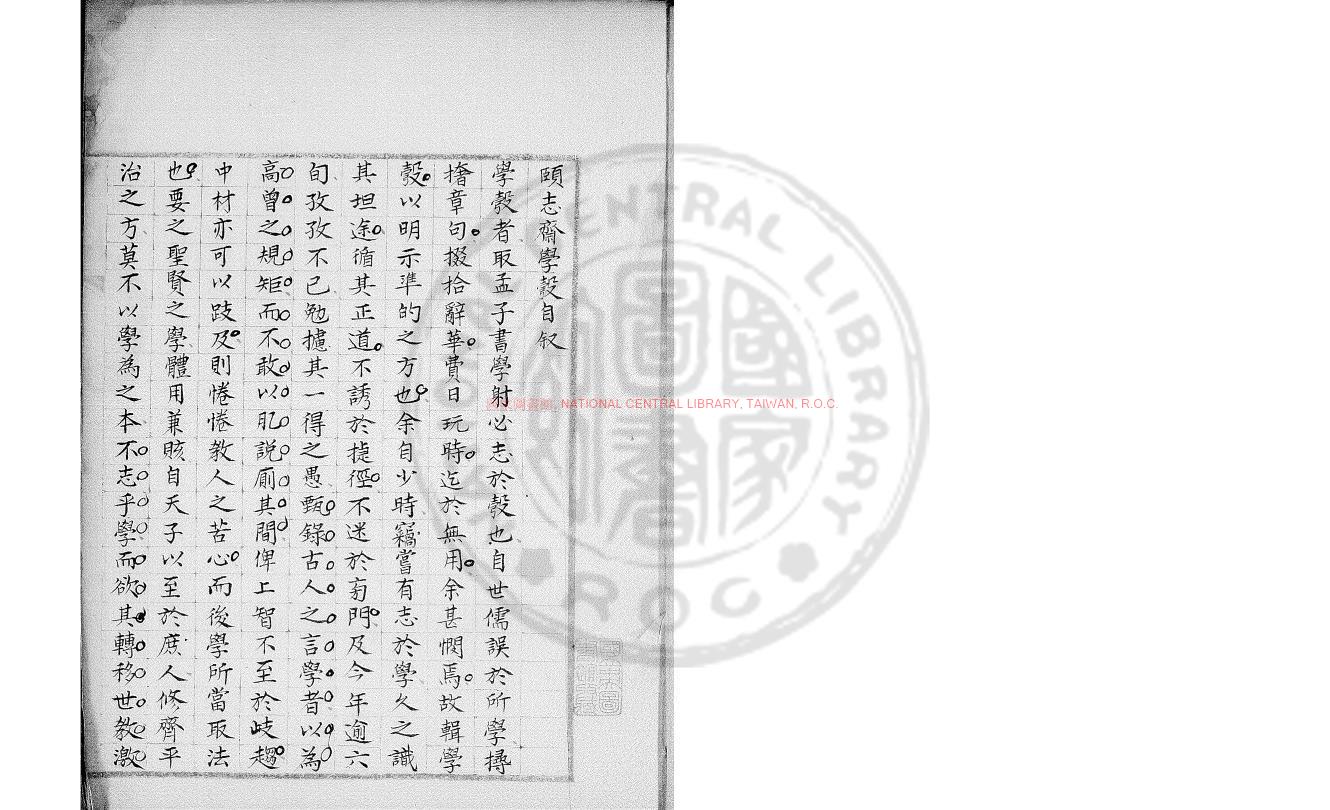 頤志齋學彀自叙
學彀者取孟子書學射必志於彀也自世儒誤於所學撏
撦章句掇拾辭華費日玩時迄於無用余甚憫焉故輯學
彀以明示準的之方也余自少時竊嘗有志於學久之識
其坦途循其正道不誘於捷徑不迷於旁門及今年逾六
旬孜孜不已勉攄其一得之愚甄錄古人之言學者以為
高曾之規矩而不敢以肊說廁其間俾上智不至於歧趨
中材亦可以跂及則惓惓教人之苦心而後學所當取法
也要之聖賢之學體用兼賅自天子以至於庶人修齊平
治之方莫不以學為之本不志乎學而欲其轉移世教激
國家圖書館, NATIONAL CENTRAL LIBRARY, TAIWAN, R.O.C.
NATIONAL CENTRAL LIBRARY
ROC